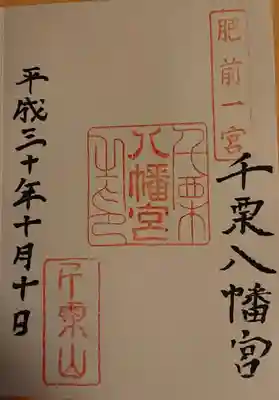 肥前一宮
千栗八幡宮
千栗
八幡宮
之印
千栗山
平成三十年十月十日